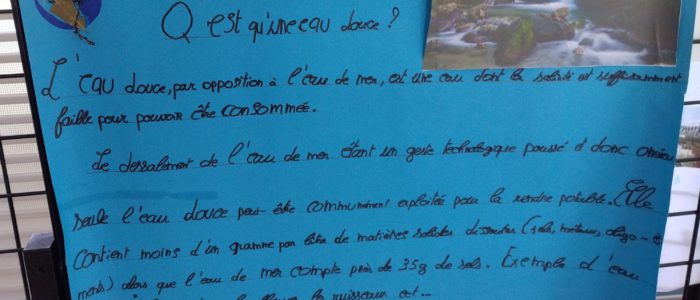 Q'est qu'une eau douce ?
L'eau douce, par opposition à l'eau de mer, est une eau dont la salinité est suffisamment
faible pour pouvoir être consommée.
Le dessalement de l'eau de mer étant un geste technologique poussé et donc onéreux
seule l'eau douce peut être communément exploitée pour la rendre potable. Elle
contient moins d'un gramme par litre de matières solides dissoutes (sels, métaux, oligo-é
ments) alors que l'eau de mer compte près de 35g de sels. Exemple d'eau
la ruisseaux est...